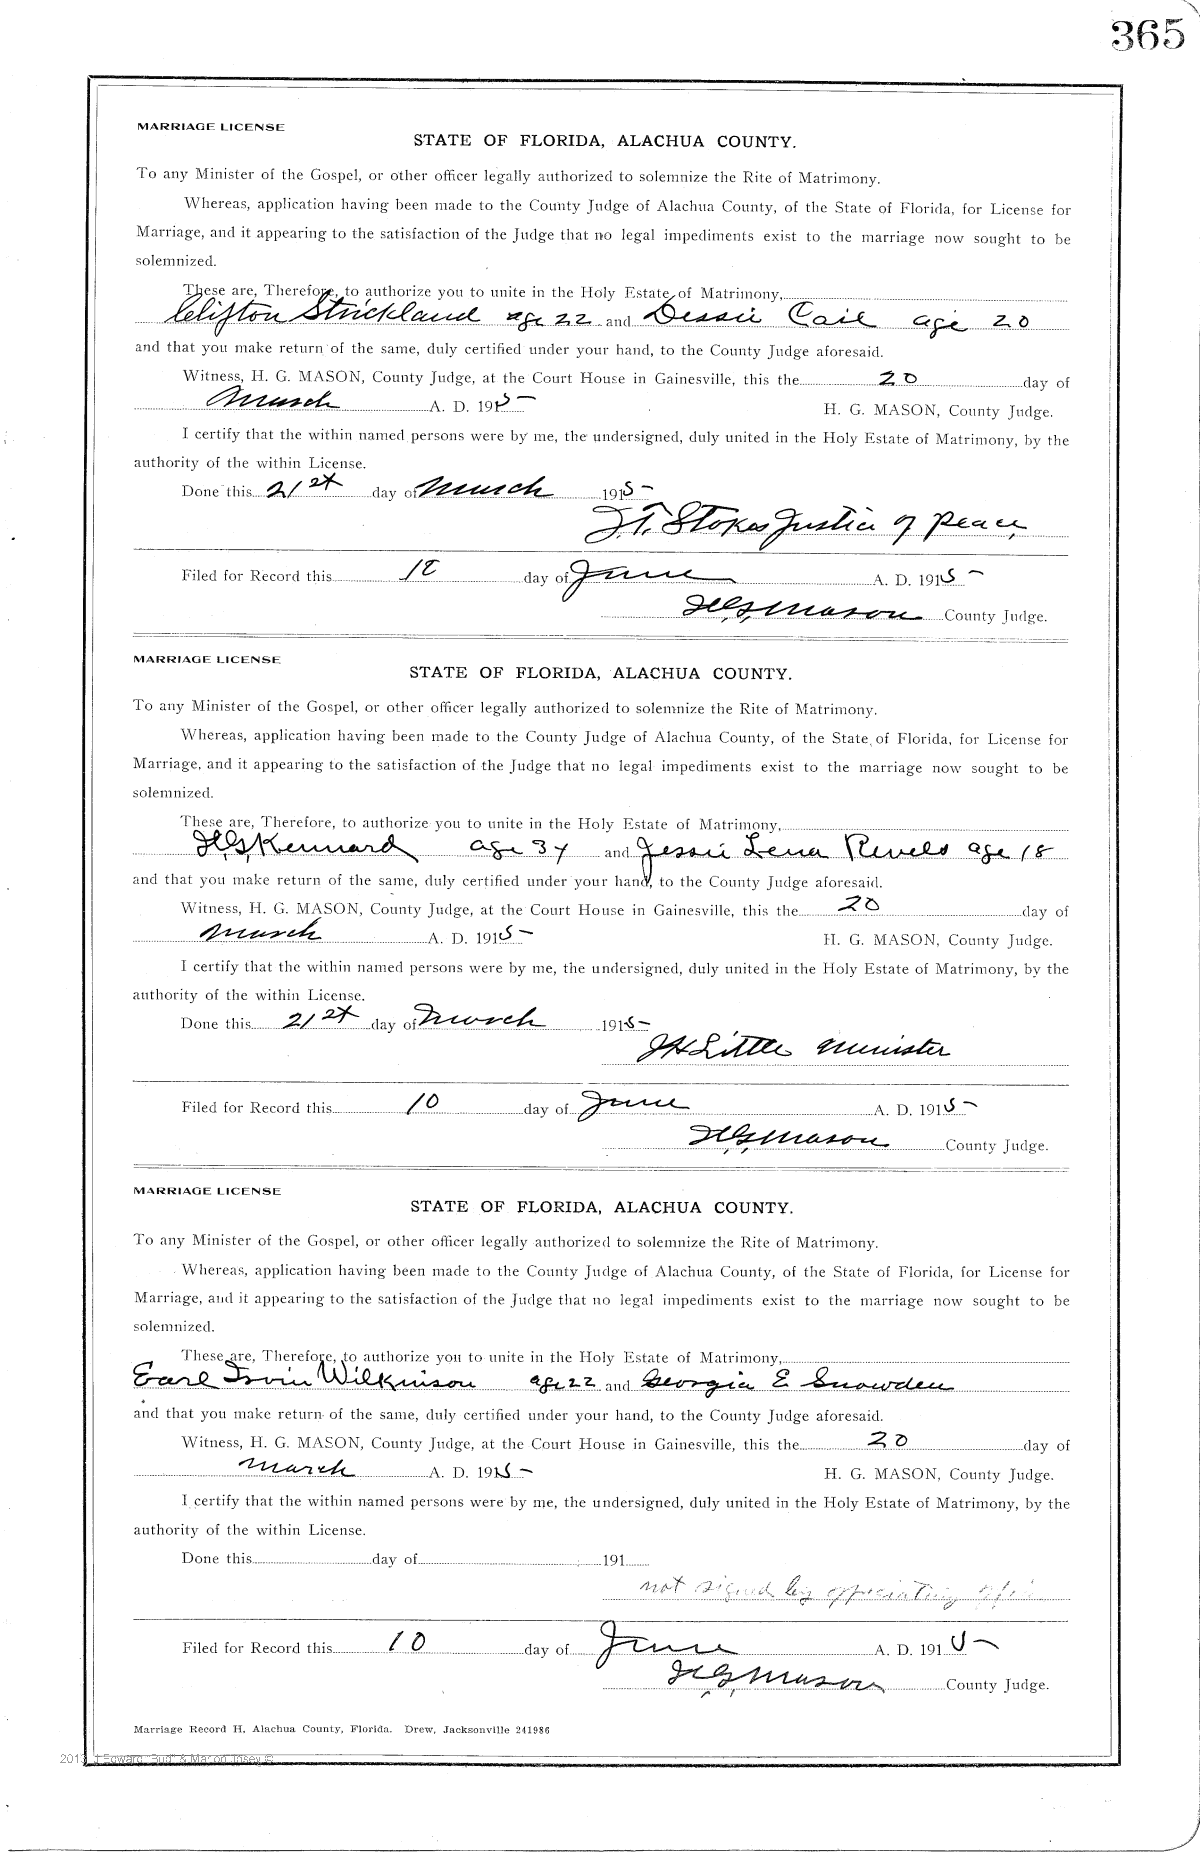 365
MARRIAGE LICENSE
STATE OF FLORIDA, ALACHUA COUNTY.
To any Minister of the Gospel, or other officer legally authorized to solemnize the Rite of Matrimony.
Whereas, application having been made to the County Judge of Alachua County, of the State of Florida, for License for
Marriage, and it appearing to the satisfaction of the Judge that no legal impediments exist to the marriage now sought to be
solemnized.
These are, Therefore, to authorize you to unite in the Holy Estate of Matrimony,
Clifton Strickland age 22 and Dessie Cail age 20
and that you make return of the same, duly certified under your hand, to the County Judge aforesaid.
Witness, H. G. MASON, County Judge, at the Court House in Gainesville, this the 20 day of
March A. D. 1915 H. G. MASON, County Judge.
I certify that the within named persons were by me, the undersigned, duly united in the Holy Estate of Matrimony, by the
authority of the within License.
Done this 21st day of March 1915
J.T. Stokes Justice of Peace
Filed for Record this day of June A. D. 1915
H.G. Mason County Judge.
MARRIAGE LICENSE
STATE OF FLORIDA, ALACHUA COUNTY.
To any Minister of the Gospel, or other officer legally authorized to solemnize the Rite of Matrimony.
Whereas, application having been made to the County Judge of Alachua County, of the State of Florida, for License for
Marriage, and it appearing to the satisfaction of the Judge that no legal impediments exist to the marriage now sought to be
solemnized.
These are, Therefore, to authorize you to unite in the Holy Estate of Matrimony,
H.G. Kennard age and Jessie Lena Revels age 18
and that you make return of the same, duly certified under your hand, to the County Judge aforesaid.
Witness, H. G. MASON, County Judge, at the Court House in Gainesville, this the 20 day of
March A. D. 1915 H. G. MASON, County Judge.
I certify that the within named persons were by me, the undersigned, duly united in the Holy Estate of Matrimony, by the
authority of the within License.
Done this 21st day of March 1915
J H Little Minister
Filed for Record this 10 day of June A. D. 1915
H.G. Mason County Judge.
MARRIAGE LICENSE
STATE OF FLORIDA, ALACHUA COUNTY.
To any Minister of the Gospel, or other officer legally authorized to solemnize the Rite of Matrimony.
Whereas, application having been made to the County Judge of Alachua County, of the State of Florida, for License for
Marriage, and it appearing to the satisfaction of the Judge that no legal impediments exist to the marriage now sought to be
solemnized.
These are, Therefore, to authorize you to unite in the Holy Estate of Matrimony,
Earl Irvin Wilkinson age 22 and Georgia E Snowden
and that you make return of the same, duly certified under your hand, to the County Judge aforesaid.
Witness, H. G. MASON, County Judge, at the Court House in Gainesville, this the 20 day of
March A. D. 1915 H. G. MASON, County Judge.
I certify that the within named persons were by me, the undersigned, duly united in the Holy Estate of Matrimony, by the
authority of the within License.
Done this day of 191
not signed by officiating
Filed for Record this 10 day of June A. D. 1915
H.G. Mason County Judge.
Marriage Record H. Alachua County, Florida. Drew, Jacksonville 241986